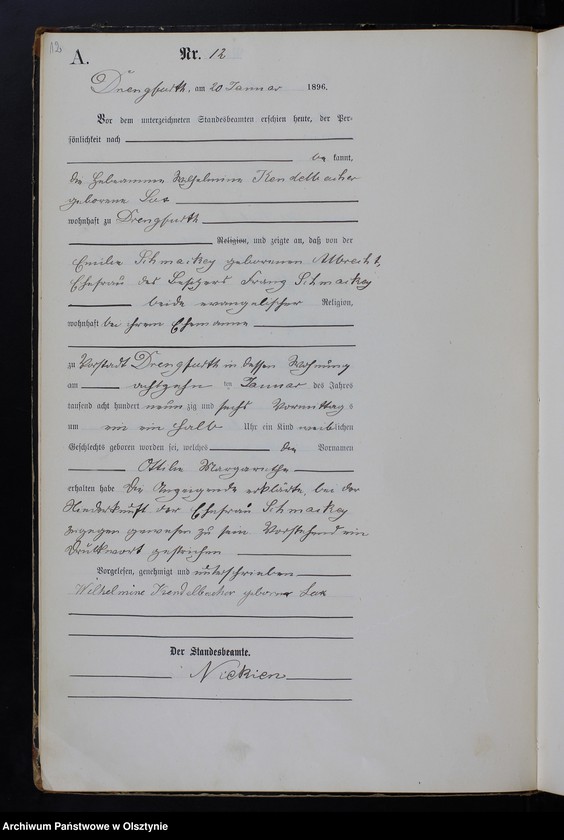 12
A.
Nr. 12
Drengfurth, am 20 Januar 1896.
Vor dem unterzeichneten Standesbeamten erschien heute, der Per-
sönlichkeit nach
be kannt,
die Hebeamme Wilhelmine Kendelbacher
geborene Lax
wohnhaft zu Drengfurth
Religion, und zeigte an, daß von der
Emilie Schmackey geborenen Albrecht,
Ehefrau des Besitzers Franz Schmackey
beide evangelischer Religion,
wohnhaft bei ihrem Ehemanne
zu Vorstadt Drengfurth in dessen Wohnung
am achtzehn ten Januar des Jahres
tausend acht hundert neun zig und sechs Vormittag s
um ein ein halb Uhr ein Kind weib lichen
Geschlechts geboren worden sei, welches die Vornamen
Ottilie Margarethe
erhalten habe Die Anzeigende erklärte, bei der
Niederkunft der Ehefrau Schmackey
zugegen gewesen zu sein Vorstehend ein
Druckwort gestrichen
Vorgelesen, genehmigt und unterschrieben
Wilhelmine Kendelbacher geborne Lax
Der Standesbeamte.
Nickien
Archiwum Państwowe w Olsztynie